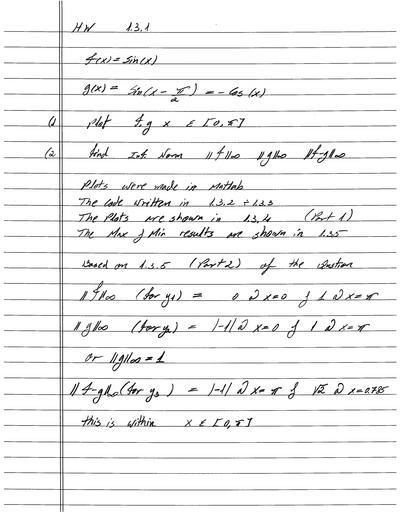 HW 1.3.1
f(x) = Sin(x)
g(x) = Sin(x - π/2) = - Cos(x)
(1 Plot f, g x ε [0, π]
(2 find Inf. Norm ||f||∞ ||g||∞ ||f-g||∞
Plots were made in Matlab
The code written in 1.3.2 ÷ 1.3.3
The Plots are shown in 1.3.4 (Part 1)
The Max & Min results are shown in 1.3.5
Based on 1.3.5 (Part 2) of the Question
||f||∞ (for y1) = 0 @ x=0 & 1 @ x=π
||g||∞ (for y2) = |-1| @ x=0 & 1 @ x=π
or ||g||∞ = 1
||f-g||∞ (for y3) = |-1| @ x=π & √2 @ x=0.785
this is within x ε [0, π]